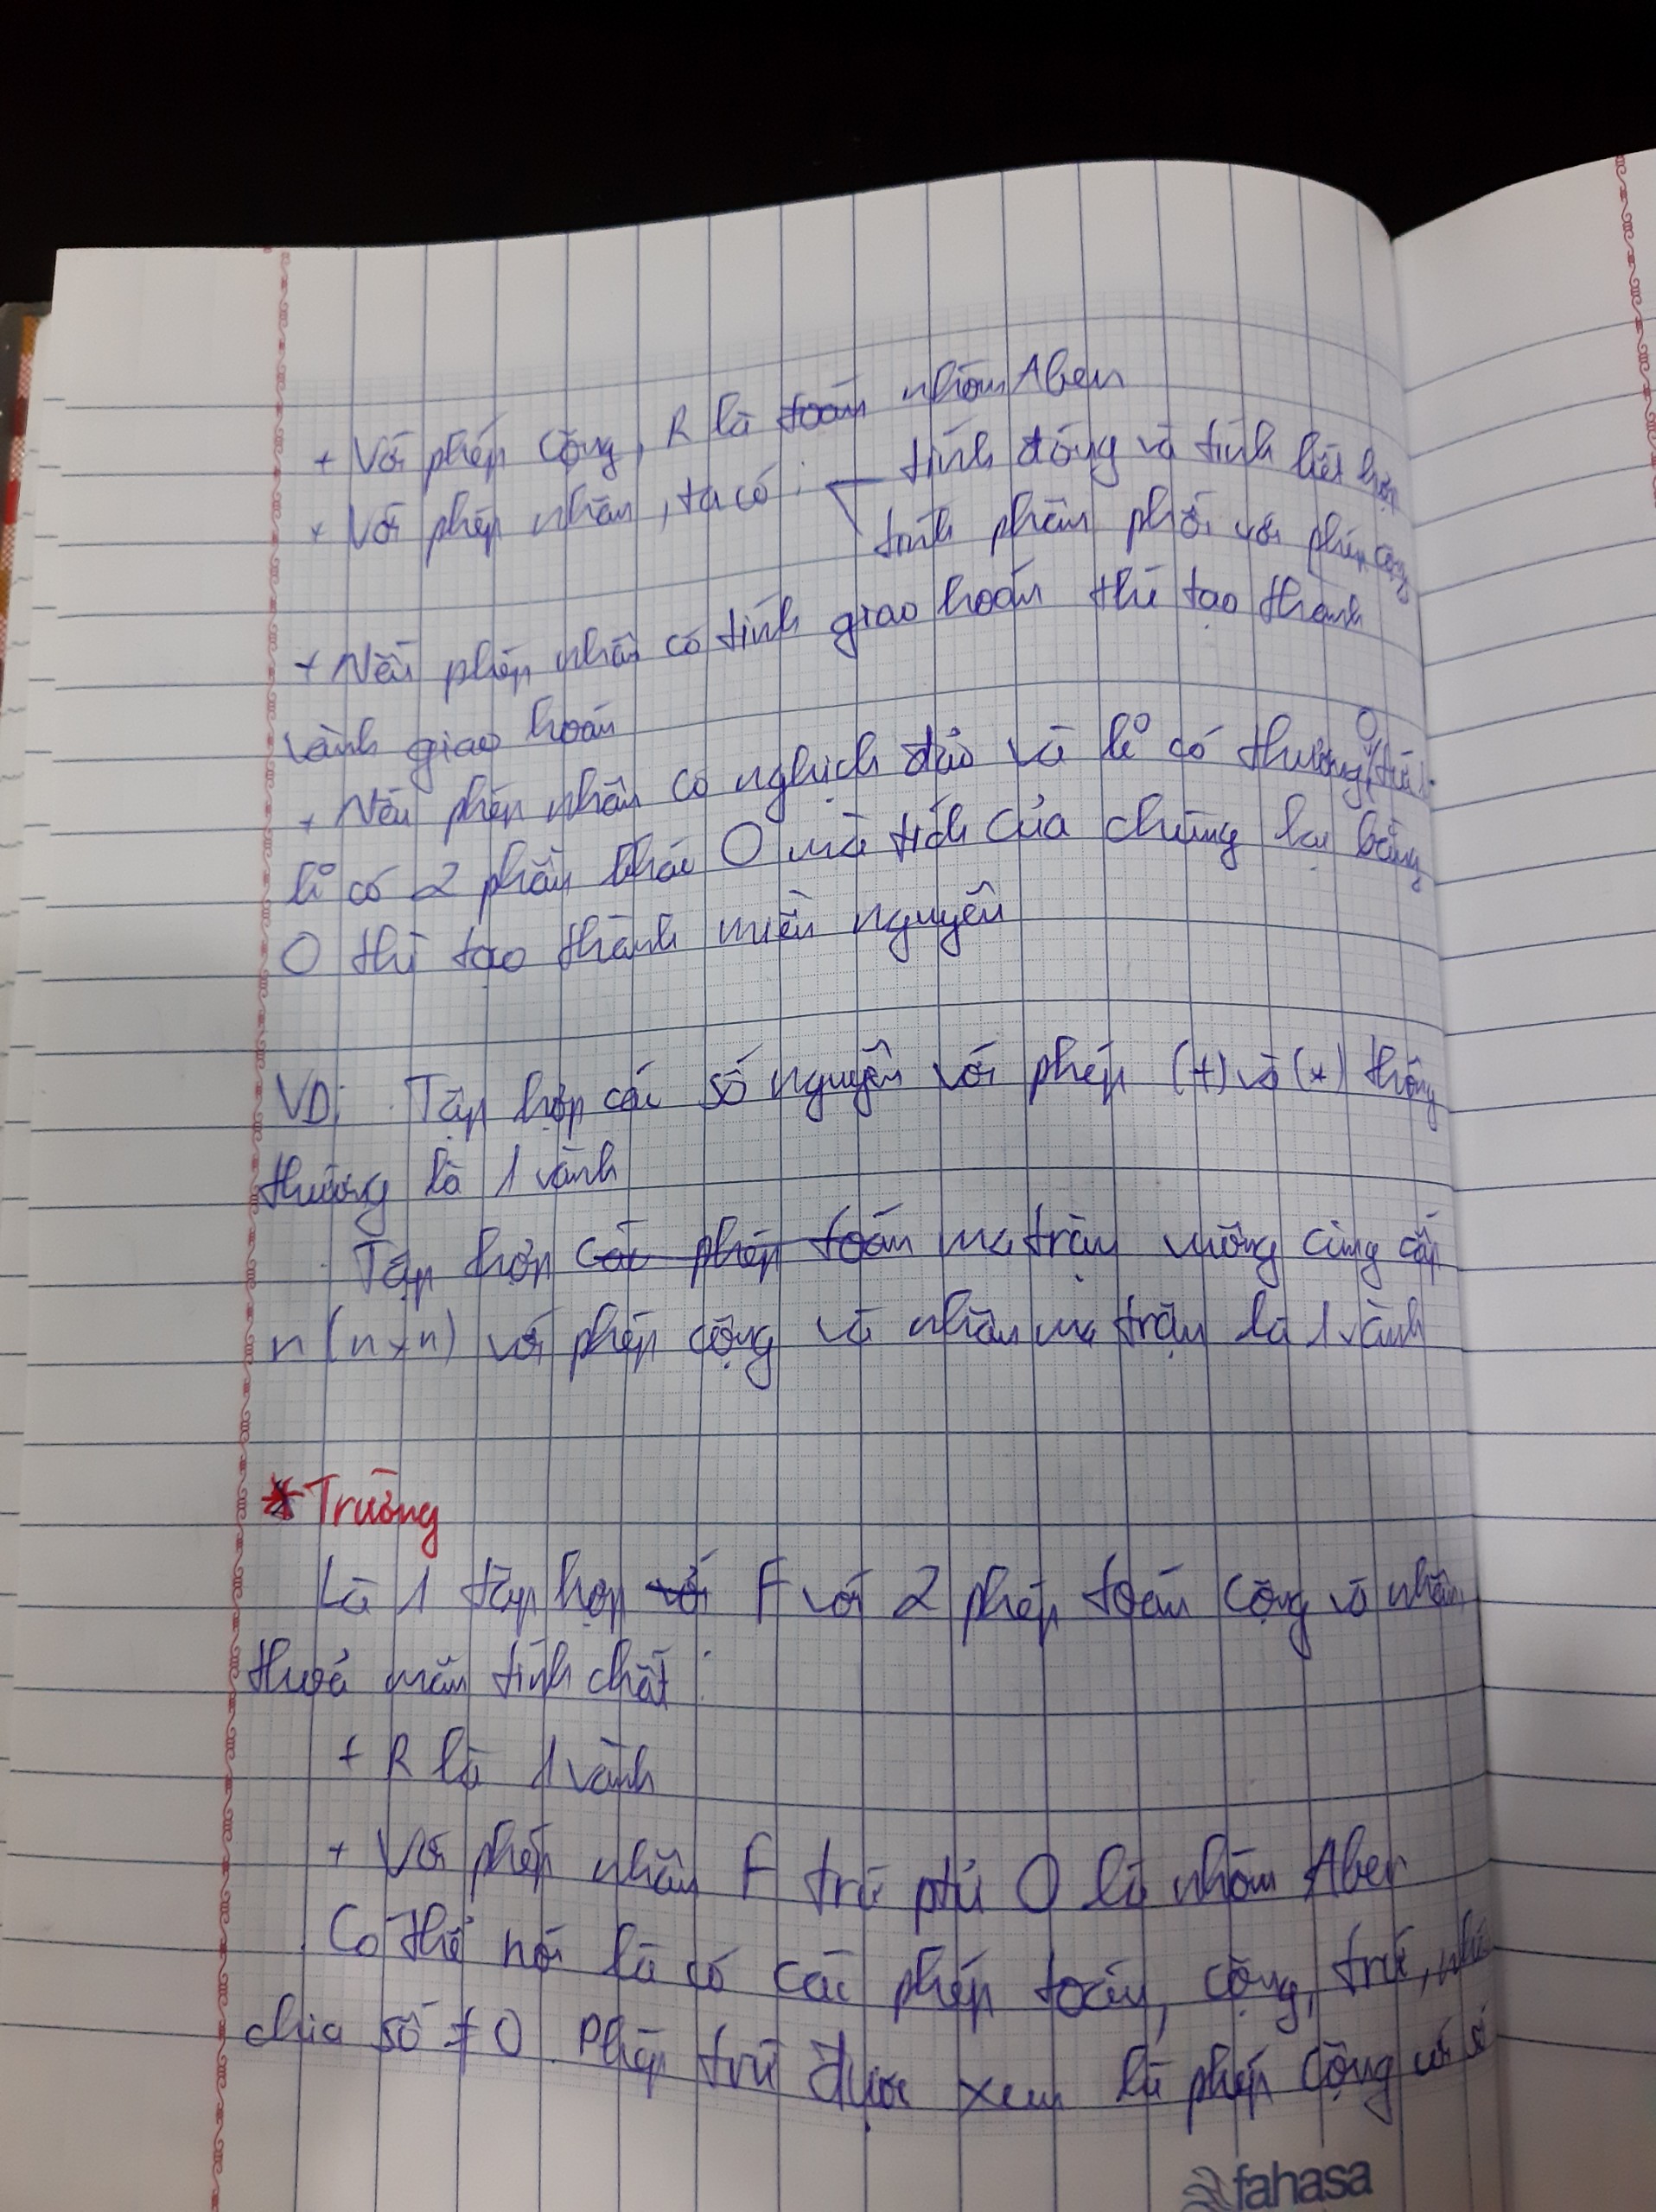 + Với phép cộng, R là toán nhóm Aben
+ Với phép nhân, ta có: tính đóng và tính kết hợp
tính phân phối với phép cộng
+ Nếu phép nhân có tính giao hoán thì tạo thành
vành giao hoán
+ Nếu phép nhân có nghịch đảo và k° có thương 0, tức
k° có 2 phần khác 0 mà tích của chúng lại bằng
0 thì tạo thành miền nguyên
VD: Tập hợp các số nguyên với phép (+) và (*) thông
thường là 1 vành
Tập hợp các phép toán ma trận vuông cùng cấp
n (n×n) với phép cộng và nhân ma trận là 1 vành
* Trường
Là 1 tập hợp với F với 2 phép toán cộng và nhân
thoả mãn tính chất:
+ R là 1 vành
+ Với phép nhân F trừ ptử 0 là nhóm Aben
Có thể nói là có các phép toán, cộng, trừ,
chia số ≠ 0. Phép trừ được xem là phép cộng với số
fahasa